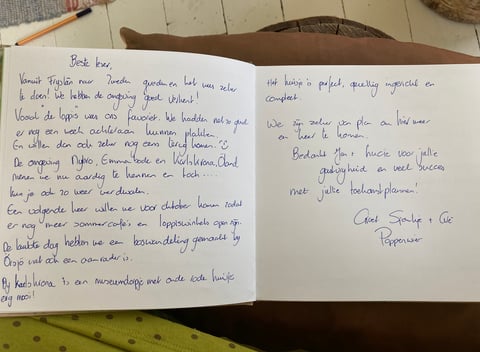 Beste lezer,
Vanuit Fryslân naar Zweden gereden en het was zeker
te doen! We hebben de omgeving goed verkent!
Vooral de "loppis" was ons favoriet. We hadden net zo goed
er nog een week achteraan kunnen plakken.
En willen dan ook zeker nog eens terug komen.
De omgeving Nybro, Emmaboda en Karlskrona, Öland
menen we nu aardig te kennen en toch....
kun je ook zo weer verdwalen.
Een volgende keer willen we voor oktober komen zodat
er nog meer sommercafé's en loppiswinkels open zijn.
De laatste dag hebben we een boswandeling gemacht bij
Örsjö wat ook een aanrader is.
Bij Karlskrona is een museumdorpje met oude rode huisjes
erg mooi!
Het huisje is perfect, gezellig ingericht en
compleet.
We zijn zeker van plan om hier weer
een keer te komen.
Bedankt + voor jullie
gastvrijheid en veel succes
met jullie toekomstplannen!
Groet +